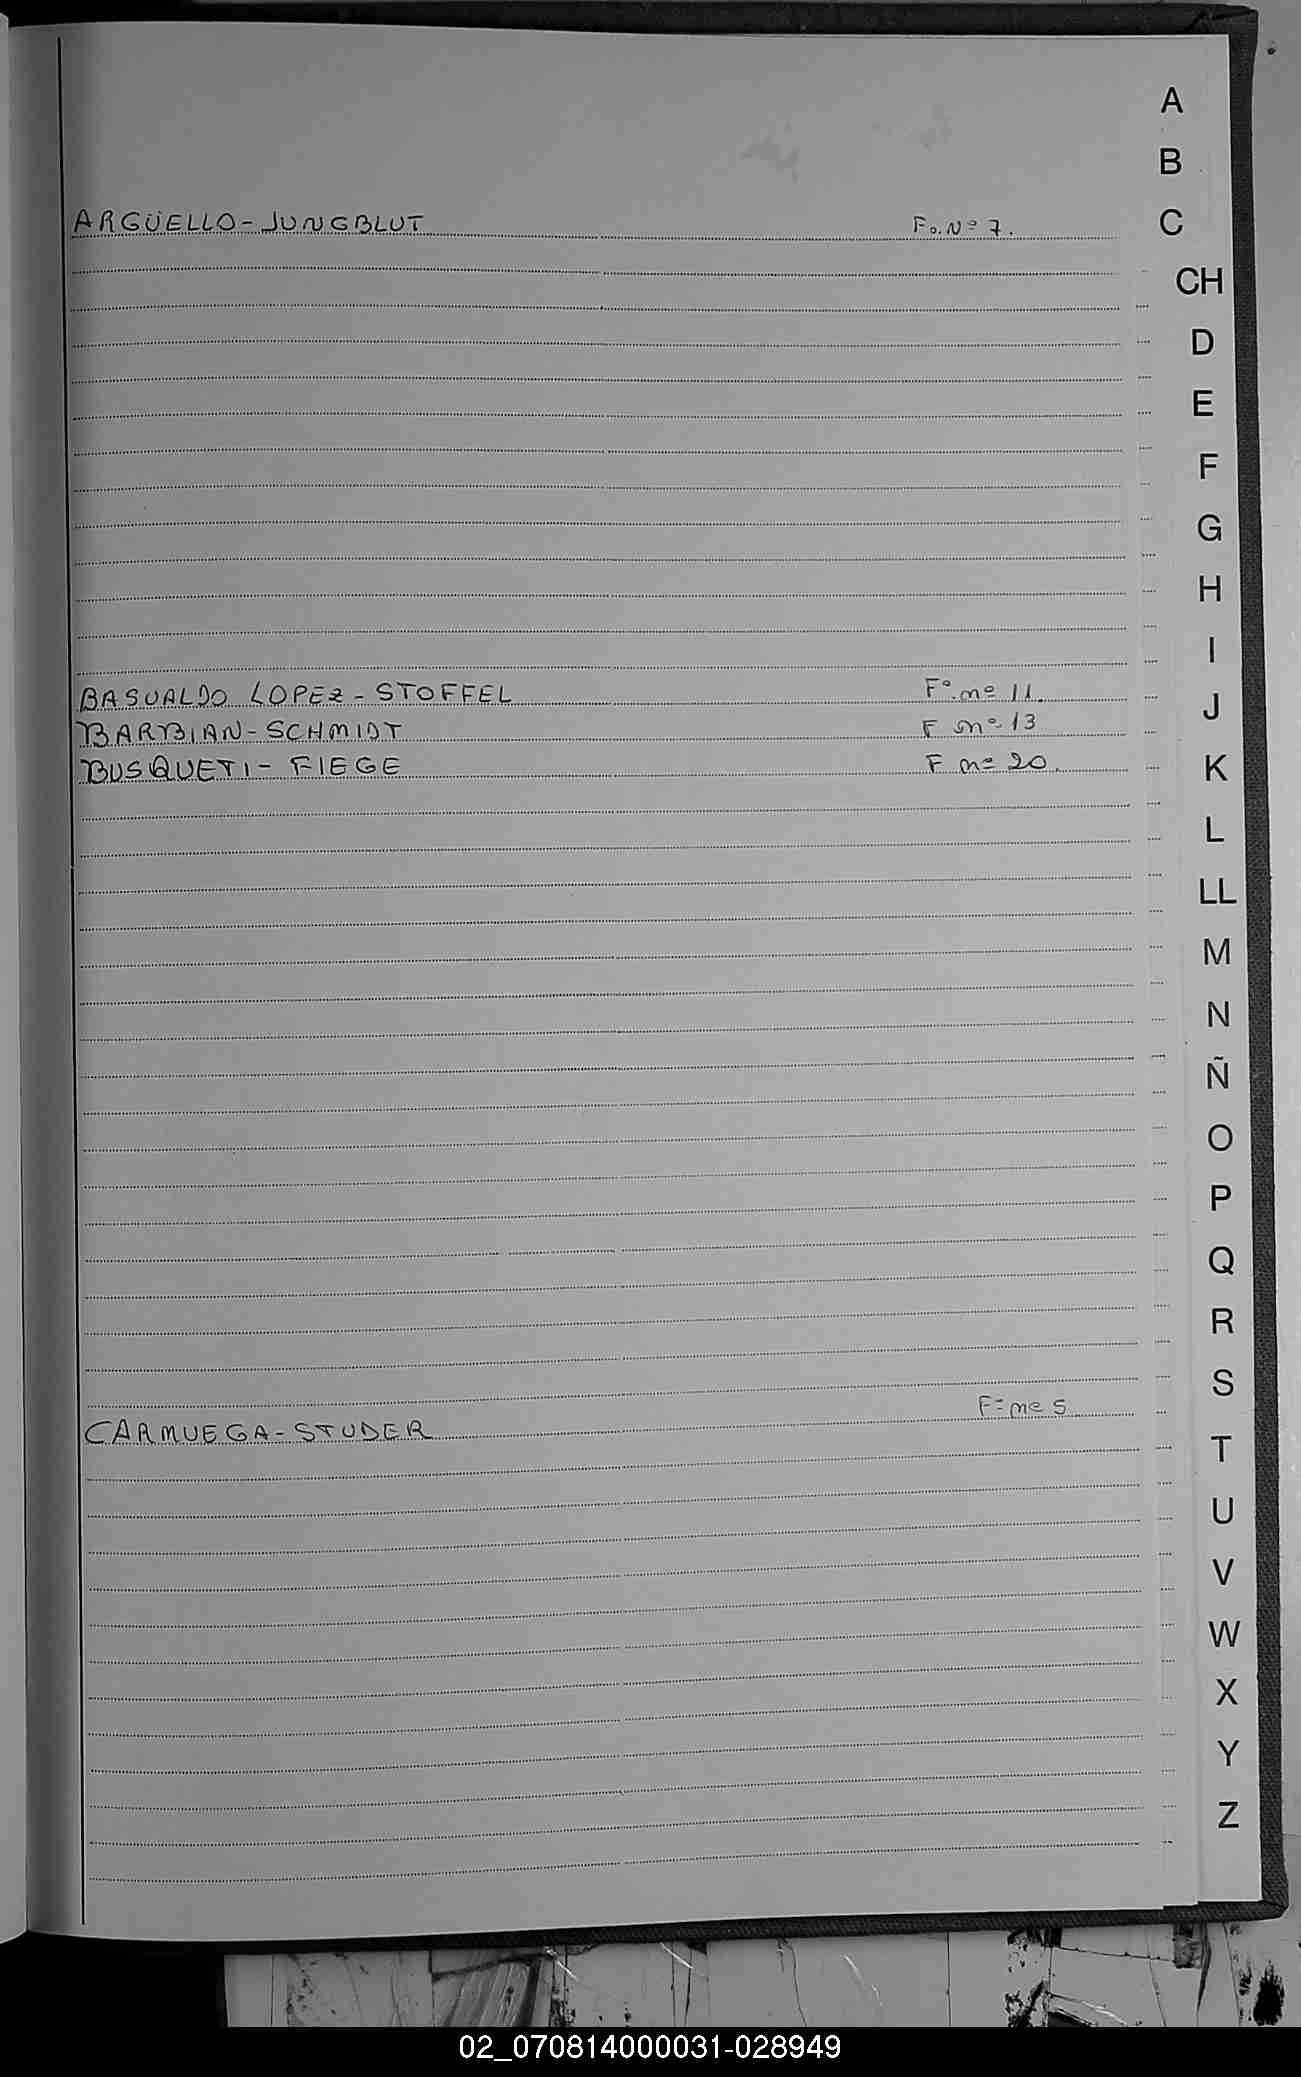 A
B
C
ARGÜELLO-JUNGBLUT Fo. Nº 7.
CH
D
E
F
G
H
I
BASUALDO LOPEZ-STOFFEL Fº. nº 11.
J
BARBIAN-SCHMIDT F nº 13
BUSQUETI-FIEGE F nº 20.
K
L
LL
M
N
Ñ
O
P
Q
R
S
CARMUEGA-STUDER Fº nº 5
T
U
V
W
X
Y
Z
02_070814000031-028949